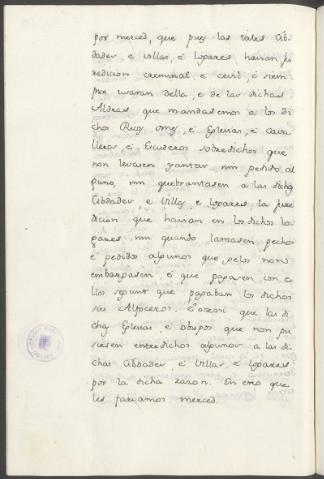 por merced, que pues las tales Cib-
dades, e villas, e logares havian ju
redicion creminal e cevil, e siem
pre usaran della, e de las dichas
Aldeas que mandasemos a los di
chos Ricos omes, e Eglesias, e Cava
lleros, e Escuderos sobredichos que
non levasen yantar, nin pedido al
guno, nin quebrantasen a las dichas
Cibdades, e Villas, e Logares, la jure
dicion que havian en los dichos lo
gares nin quando lanzasen pechos
e pedidos algunos que gelos non
embargasen, e que pagasen con e
llos segunt que pagaban los dichos
sus Alfoceros. E otrosi que las di
chas Eglesias e obispos que non pu
siesen entredichos algunos a las di
chas Cibdades e Villas, e Logares
por la dicha razon. En esto que
les fariamos merced.